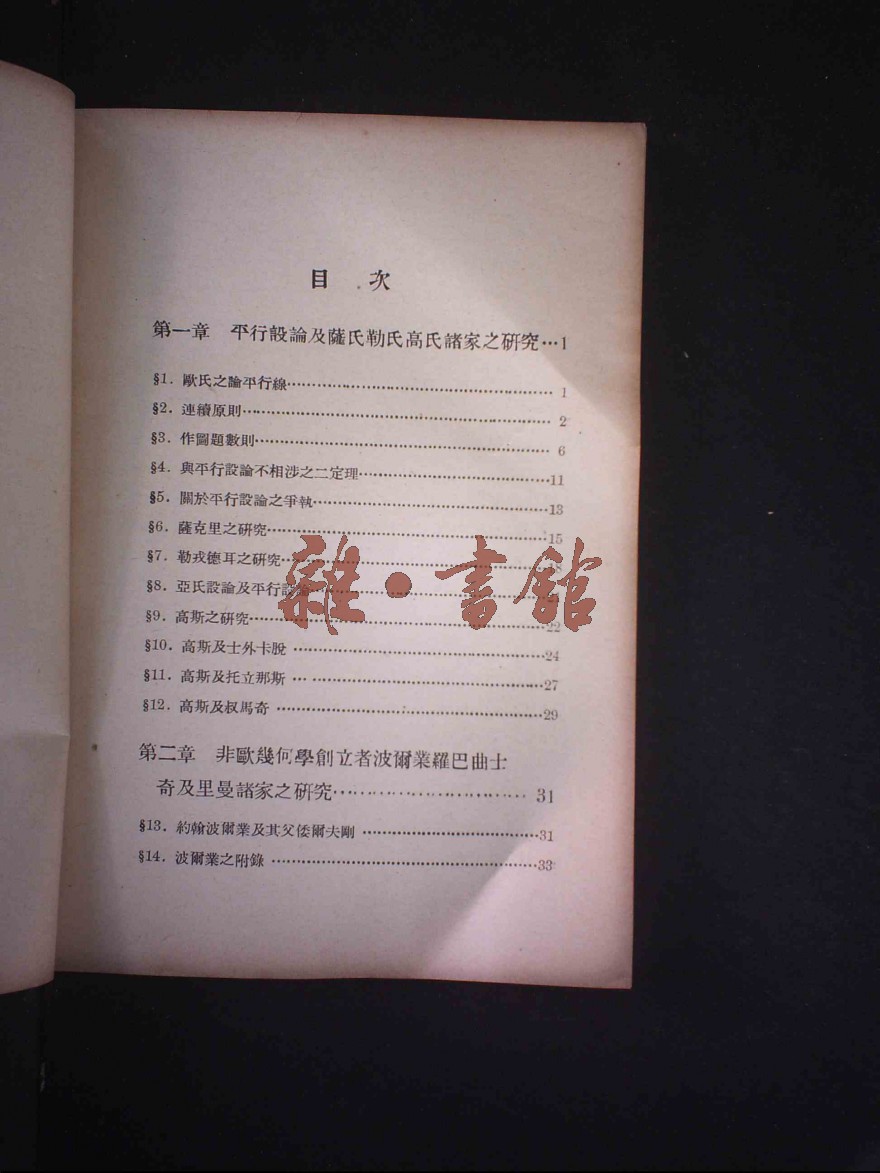 目 次
第一章 平行設論及薩氏勒氏高氏諸家之研究…1
§1. 歐氏之論平行線………1
§2. 連續原則………2
§3. 作圖題數則………6
§4. 與平行設論不相涉之二定理………11
§5. 關於平行設論之爭執………13
§6. 薩克里之研究………15
§7. 勒戎德耳之研究………18
§8. 亞氏設論及平行設論………
§9. 高斯之研究………22
§10. 高斯及士外卡脫………24
§11. 高斯及托立那斯………27
§12. 高斯及叔馬奇………29
第二章 非歐幾何學創立者波爾業羅巴曲士
奇及里曼諸家之研究………31
§13. 約翰波爾業及其父倭爾夫剛………31
§14. 波爾業之附錄………33
雜·書館